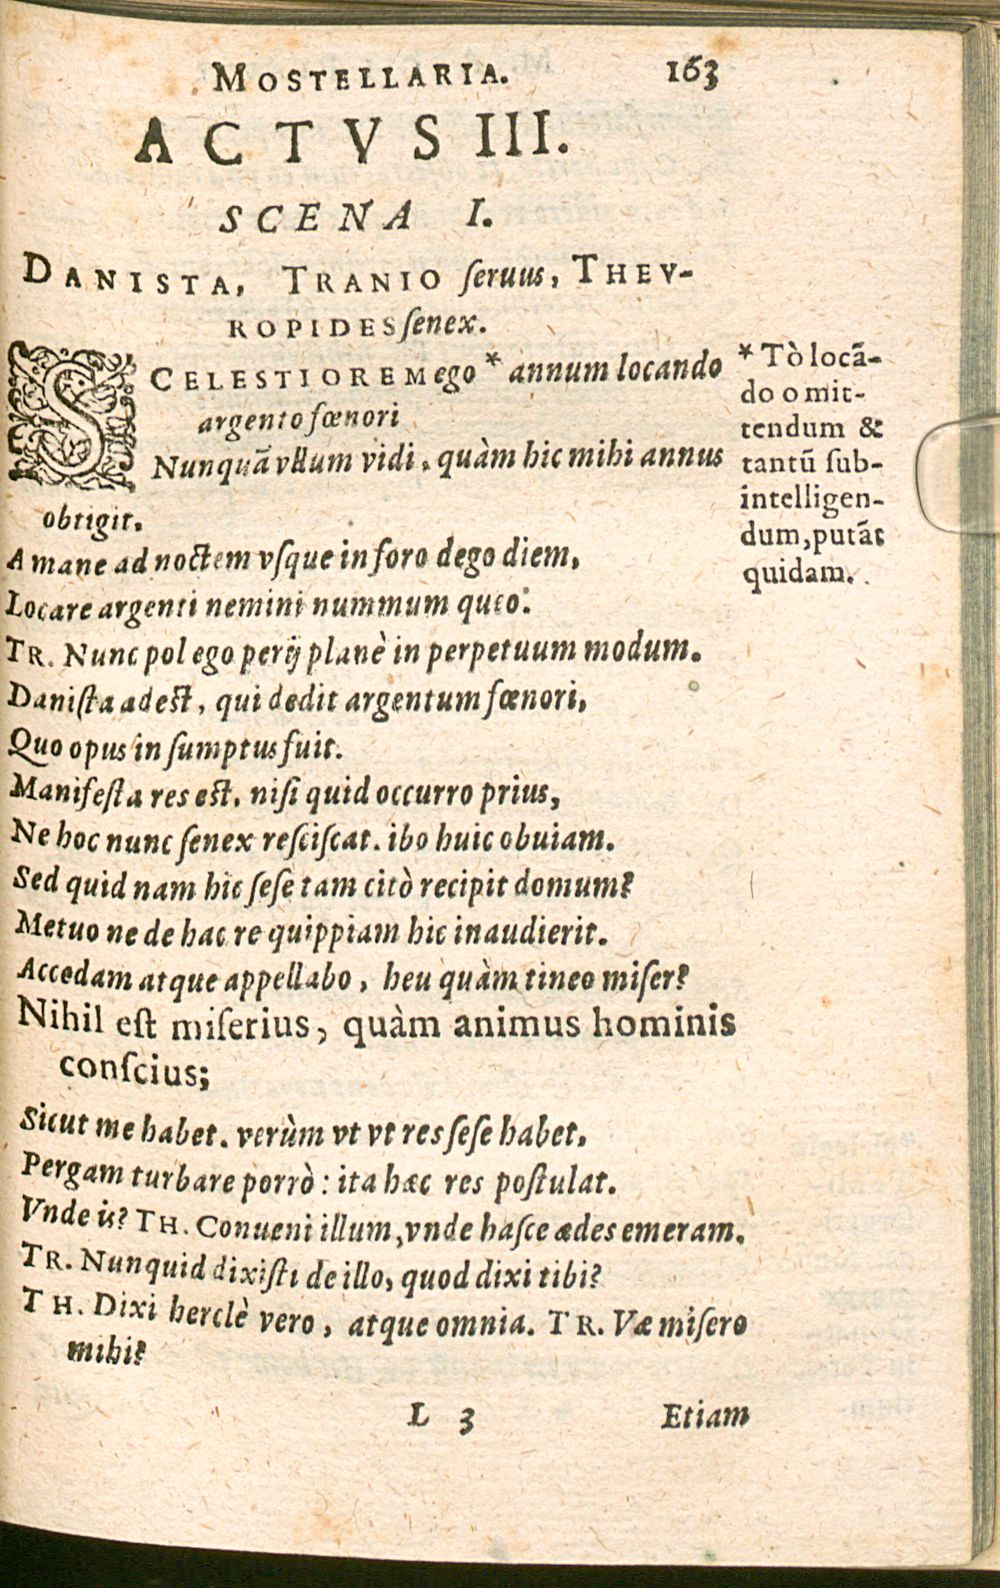 MOSTELLARIA. 163
ACTVS III.
SCENA I.
DANISTA, TRANIO ſeruus, THEV-
ROPIDES ſenex.
SCELESTIOREM ego * annum locando
argento fœnori
Nunquã vllum vidi, quàm hic mihi annus
obtigit.
A mane ad noctem vſque in foro dego diem,
Locare argenti nemini nummum queo.
TR. Nunc pol ego perij planè in perpetuum modum.
Daniſta adeſt, qui dedit argentum fœnori,
Quo opus in ſumptus fuit.
Manifeſta res eſt, niſi quid occurro prius,
Ne hoc nunc ſenex reſciſcat. ibo huic obuiam.
Sed quid nam hic ſeſe tam citò recipit domum?
Metuo ne de hac re quippiam hic inaudierit.
Accedam atque appellabo, heu quàm timeo miſer?
Nihil eſt miſerius, quàm animus hominis
conſcius;
Sicut me habet. verùm vt vt res ſeſe habet,
Pergam turbare porrò: ita hæc res poſtulat.
Vnde is? TH. Conueni illum, vnde haſce ædes emeram.
TR. Nunquid dixiſti de illo, quod dixi tibi?
TH. Dixi herclè vero, atque omnia. TR. Væ miſero
mihi?
* Tò locã-
do omit-
tendum &
tantũ ſub-
intelligen-
dum, putãt
quidam.
L 3 Etiam